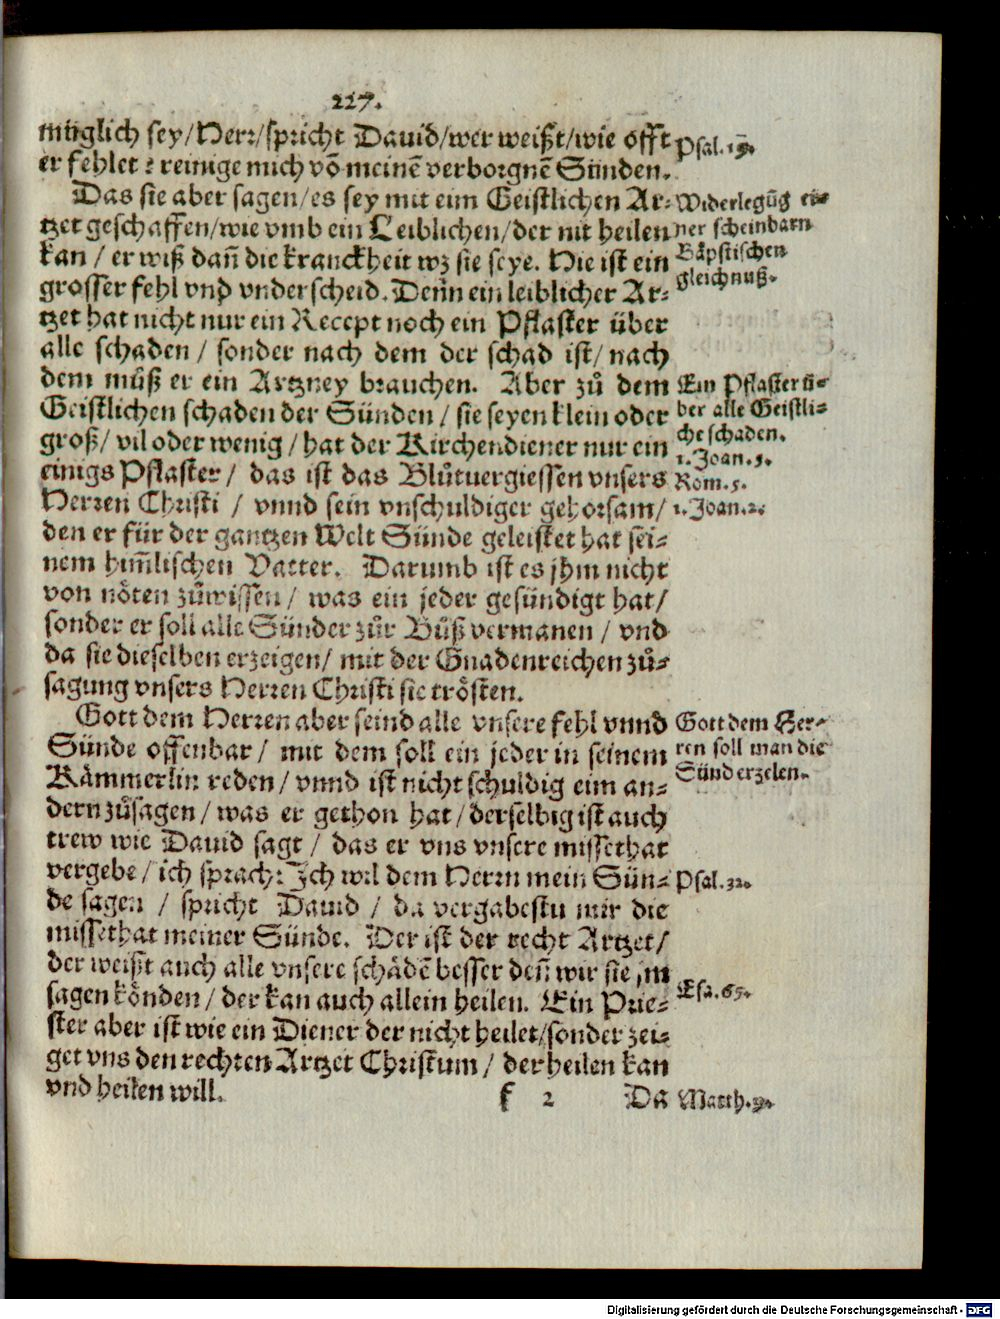 227.
müglich sey/Herr/spricht Dauid/wer weißt/wie offt
er fehlet? reinige mich võ meinẽ verborgnẽ Sünden.
Psal. 19.
Das sie aber sagen/es sey mit eim Geistlichen Ar-
tzet geschaffen/wie vmb ein Leiblichen/der nit heilen
kan / er wiß dañ die kranckheit wz sie seye. Hie ist ein
grosser fehl vnd vnderscheid. Denn ein leiblicher Ar-
tzet hat nicht nur ein Recept noch ein Pflaster über
alle schaden / sonder nach dem der schad ist/ nach
dem můß er ein Artzney brauchen. Aber zů dem
Geistlichen schaden der Sünden / sie seyen klein oder
groß/ vil oder wenig / hat der Kirchendiener nur ein
einigs Pflaster / das ist das Blůtuergiessen vnsers
Herren Christi / vnnd sein vnschuldiger gehorsam/
den er für der gantzen Welt Sünde geleistet hat sei-
nem him̃lischen Vatter. Darumb ist es jhm nicht
von nöten zůwissen / was ein jeder gesündigt hat/
sonder er soll alle Sünder zůr Bůß vermanen / vnd
da sie dieselben erzeigen/ mit der Gnadenreichen zů-
sagung vnsers Herren Christi sie trösten.
Widerlegũg ei-
ner scheinbarn
Bäpstischen
gleichnuß.
Ein Pflaster ü-
ber alle Geistli-
che schaden.
1. Joan. 1.
Rom. 5.
1. Joan. 2.
Gott dem Herren aber seind alle vnsere fehl vnnd
Sünde offenbar / mit dem soll ein jeder in seinem
Kämmerlin reden / vnnd ist nicht schuldig eim an-
dern zůsagen / was er gethon hat / derselbig ist auch
trew wie Dauid sagt / das er vns vnsere missethat
vergebe / ich sprach: Ich wil dem Herrn mein Sün-
de sagen / spricht Dauid / da vergabestu mir die
missethat meiner Sünde. Der ist der recht Artzet/
der weißt auch alle vnsere schädẽ besser deñ wir sie jm
sagen könden / der kan auch allein heilen. Ein Prie-
ster aber ist wie ein Diener der nicht heilet/sonder zei-
get vns den rechten Artzet Christum / der heilen kan
vnd heilen will.
Gott dem Her-
ren soll man die
Sünd erzelen.
Psal. 32.
Esa. 65.
Matth. 9.
f 2 Da
Digitalisierung gefördert durch die Deutsche Forschungsgemeinschaft - DFG